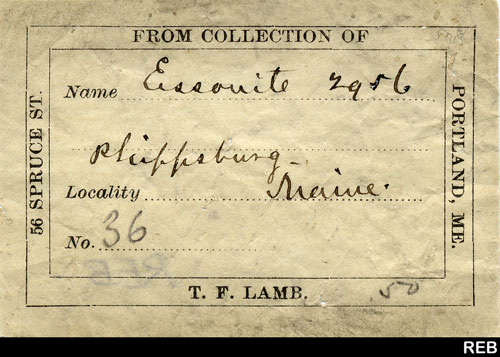 FROM COLLECTION OF
56 SPRUCE ST.
Name Essonite 2956
Phippsburg
Locality Maine.
No. 36
PORTLAND, ME.
T. F. LAMB.
.50
REB